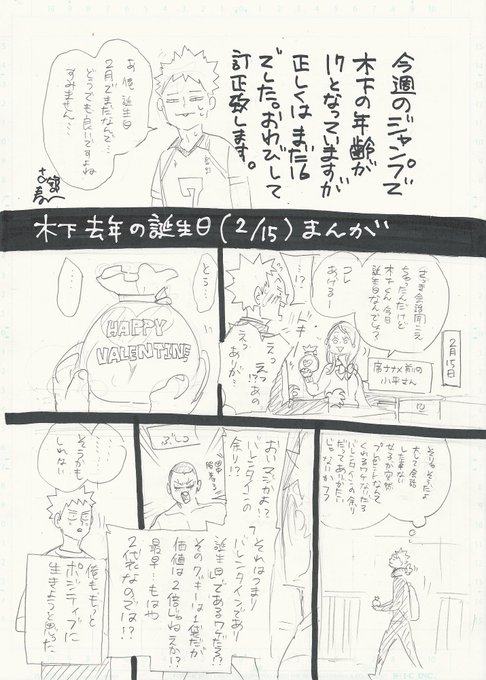 今週のジャンプで
木下の年齢が
17となっていますが
正しくはまだ16
でした。おわびして
訂正致します。
あ、俺、誕生日
2月でまだなんで…
どっちでも良いですよね
すみません…
古舘
春一
木下 去年の誕生日(2/15)まんが
2月15日
さっき会話聞こえ
ちゃったんだけど
木下くん今日
誕生日なんでしょ?
コレ
あげるー
席ナナメ前の
小平さん
…!?
えっ
えっ!?あの
あっ
ありが…
どぅ…
…
HAPPY
VALENTINE
そりゃそうだよ
もして会話
した事ない
女子が突然
プレゼントなんて
くれるワケないだろ
バレンタインの余り
だってありがたい
じゃないか?
おいマジかよ!?
バレンタインの
余り!?
それはつまり
バレンタインであり
誕生日であるワケだろ!?
そのクッキーは1袋だが
価値は2倍じゃねえか!?
最早ーもはや
2代れなのでは!?
ぶしつ
田中
着替え中
…
そうかも
しれない
俺ももっと
ポジティブに
生きようと思った